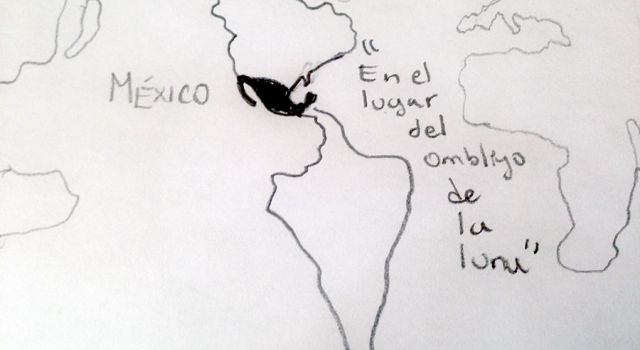 MÉXICO
"En el
lugar
del
ombligo
de
la
luna"